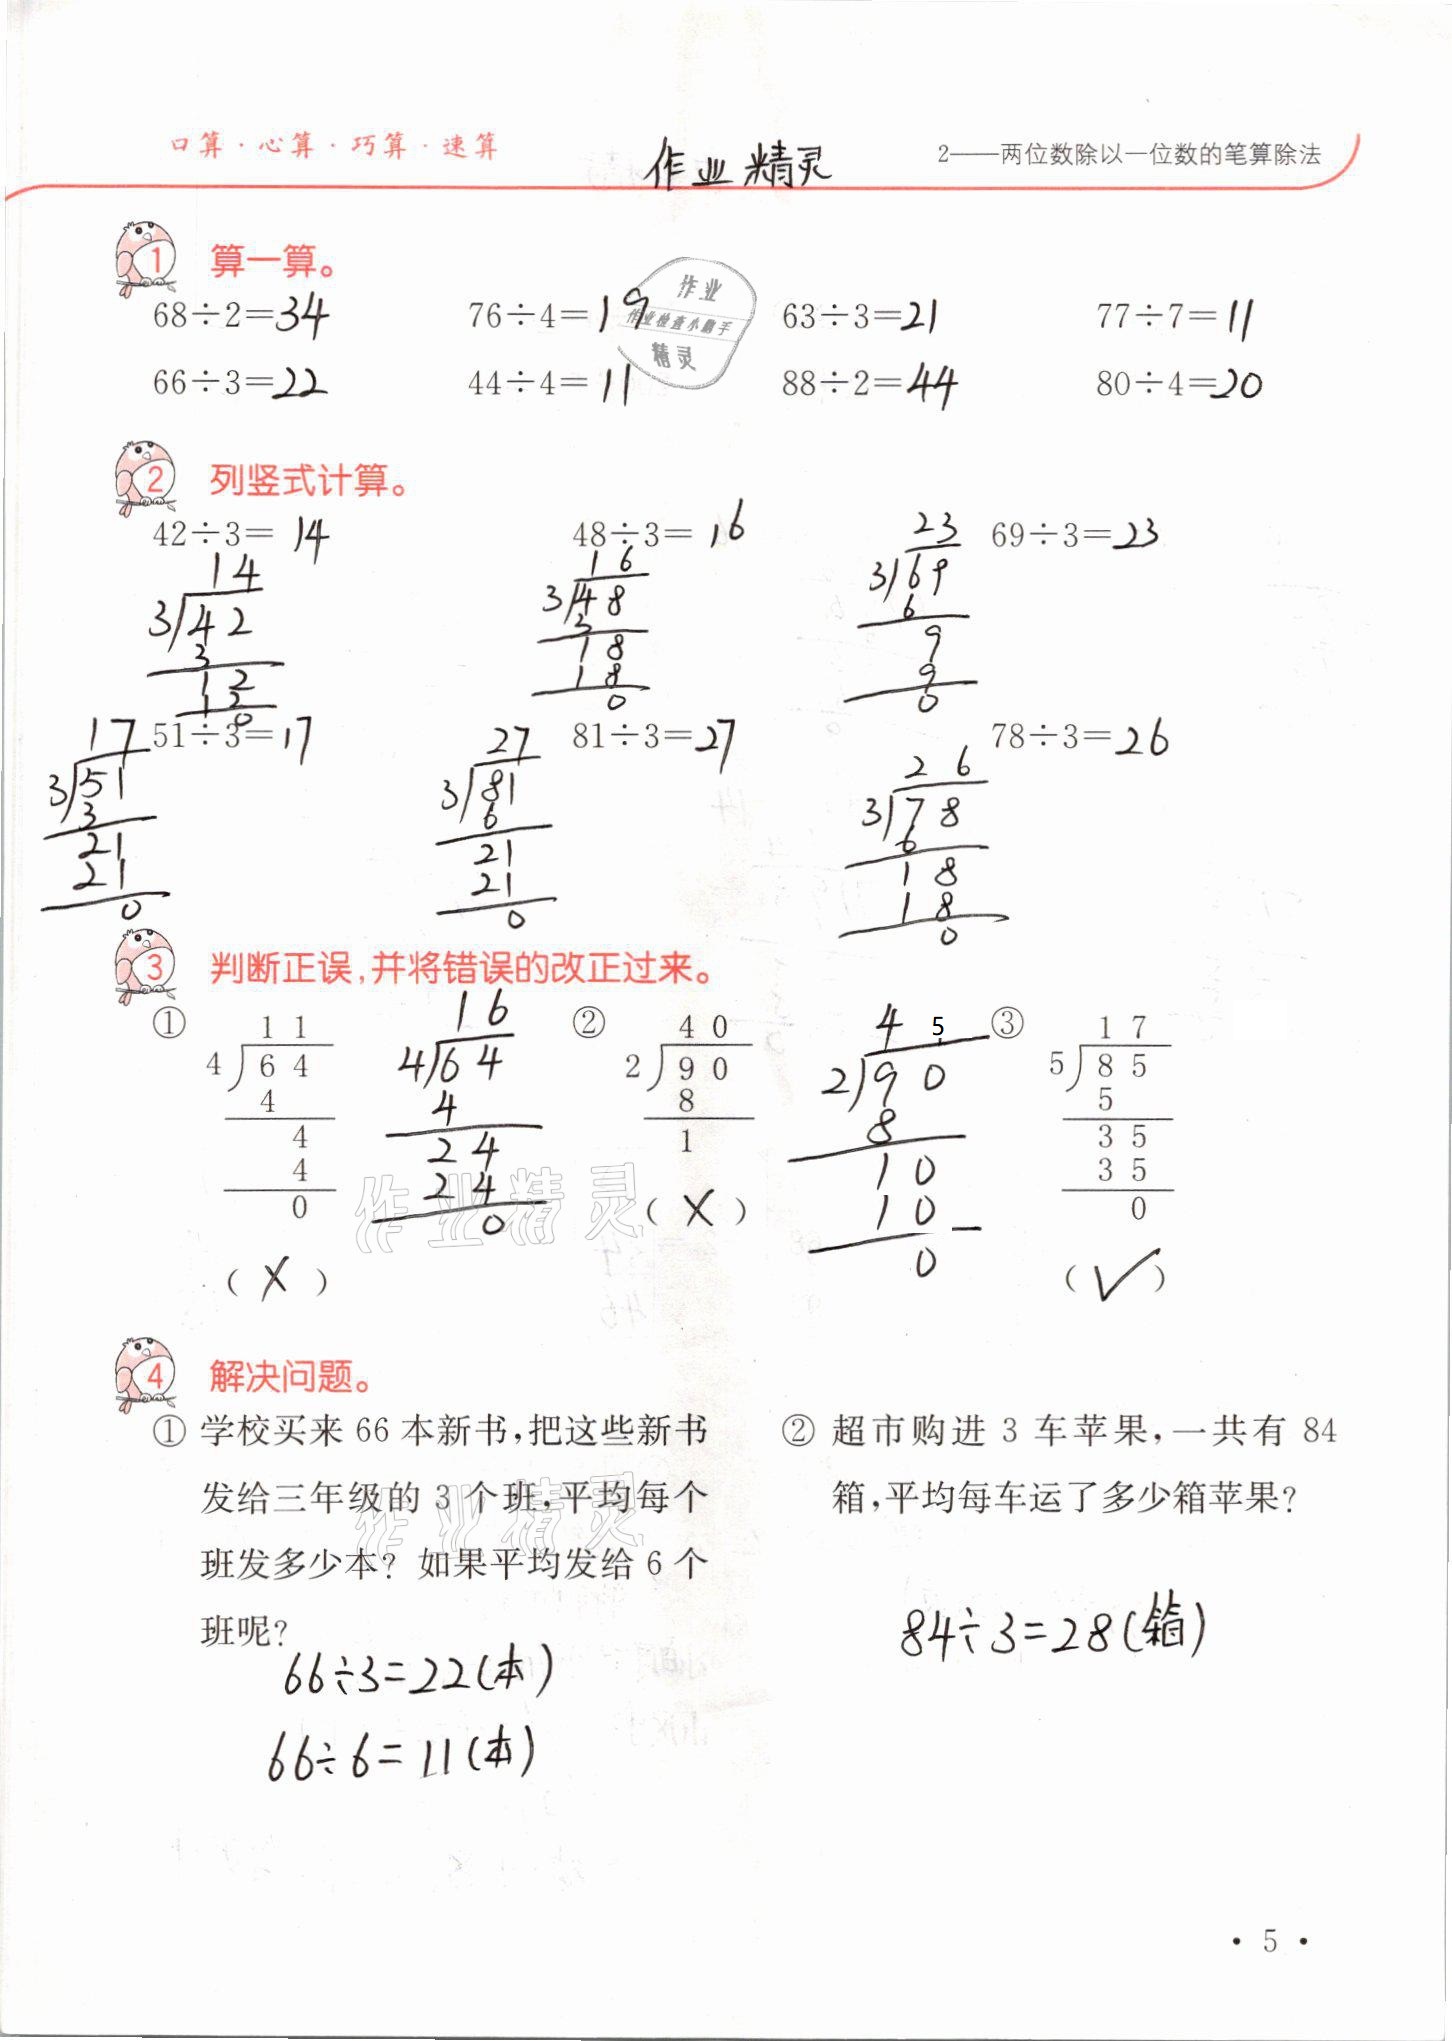 口算·心算·巧算·速算 作业精灵 2——两位数除以一位数的笔算除法
1 算一算。
68÷2=34 76÷4=19 63÷3=21 77÷7=11
66÷3=22 44÷4=11 88÷2=44 80÷4=20
作业
作业检查小帮手
精灵
2 列竖式计算。
42÷3=14 48÷3=16 69÷3=23
14
3 42
3
12
12
0
16
3 48
3
18
18
0
23
3 69
6
9
9
0
51÷3=17 81÷3=27 78÷3=26
17
3 51
3
21
21
0
27
3 81
6
21
21
0
26
3 78
6
18
18
0
3 判断正误,并将错误的改正过来。
①
11
4 64
4
4
4
0
(X)
16
4 64
4
24
24
0
②
40
2 90
8
1
(X)
45
2 90
8
10
10
0
③
17
5 85
5
35
35
0
(√)
作业精灵
4 解决问题。
① 学校买来 66 本新书,把这些新书
发给三年级的 3 个班,平均每个
班发多少本? 如果平均发给 6 个
班呢?
66÷3=22(本)
66÷6=11(本)
作业精灵
② 超市购进 3 车苹果,一共有 84
箱,平均每车运了多少箱苹果?
84÷3=28(箱)
· 5 ·